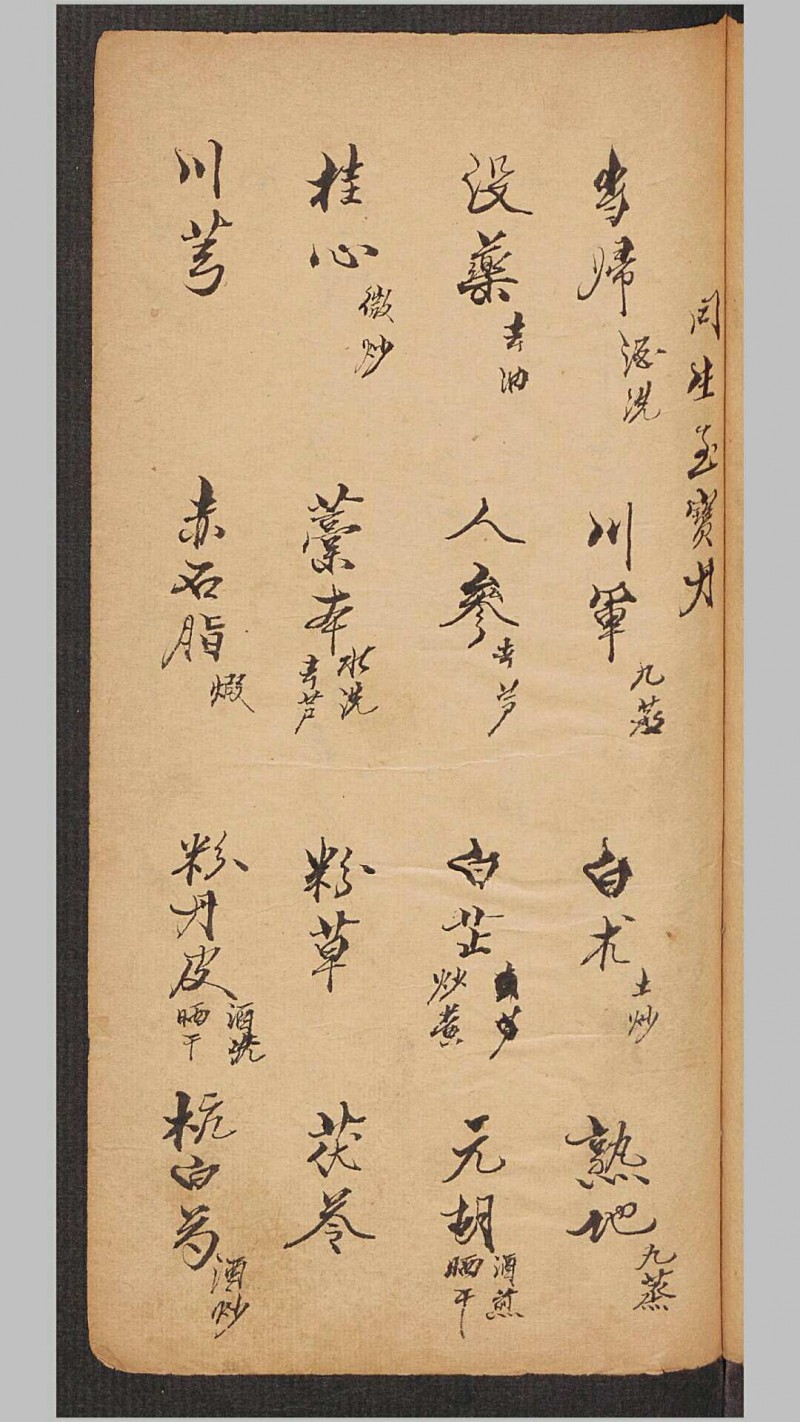 同生至寶丹
当歸 酒洗 川軍 九蒸 白朮 土炒 熟地 九蒸
没藥 去油 人參 去芦 白芷 去芦 炒黄 元胡 酒煎 晒干
桂心 微炒 藁本 水洗 去芦 粉草 茯苓
川芎 赤石脂 煅 粉丹皮 酒洗 晒干 杭白芍 酒炒